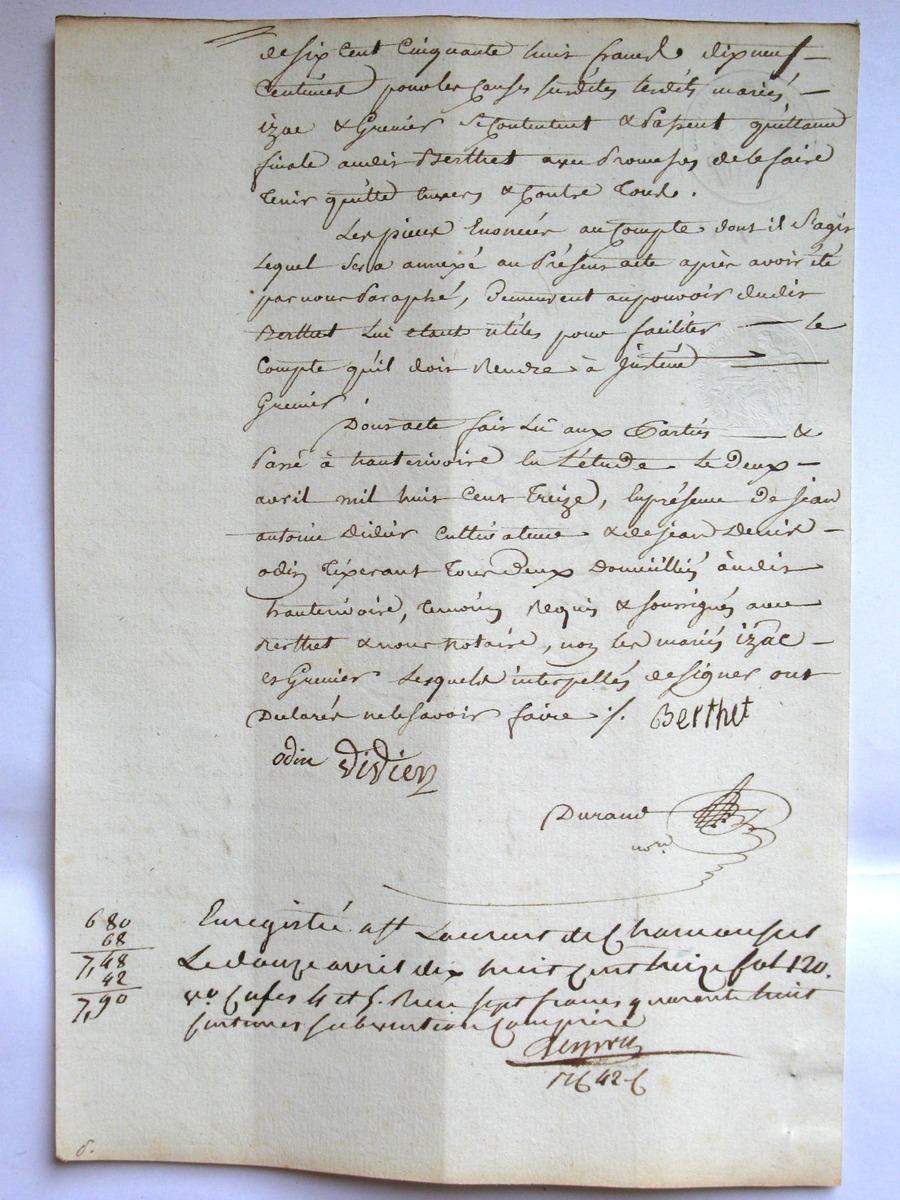 de six cent cinquante huit francs dix neuf
centimes pour les causes susdites lesdits mariés
izac & Grenier se contentent & Passent quittance
finale audit Berthet avec Promesses de le faire
tenir quitte envers & contre tous.
Les pieces Enoncées au Compte dont il S'agit
lequel sera annexé au Présent acte après avoir été
par nous Paraphé, Demeurent au pouvoir dudit
Berthet Lui etant utiles pour faciliter le
Compte qu'il doit Rendre à justine
Grenier.
Dont acte fait Lu aux Parties &
Passé à hauterivoire En L'étude Le Deux
avril mil huit Cent Treize, En présence de jean
antoine Didier cultivateur & de jean Denis
odin Tixerant Tous Deux Domiciliés audit
hauterivoire, temoins Requis & soussignés avec
Berthet & nous notaire, non les mariés izac
et Grenier Lesquels interpellés de signer ont
Declarés ne le savoir faire ./. Berthet
odin Didier
Durand
nore
Enregistré a St Laurent de Chamousset
Le douze avril dix huit cent treize fol 120.
vo Cases 4 et 5. Recu sept francs quarante huit
centimes subvention Comprise
42 c
6 80
68
7,48
42
7,90
6.